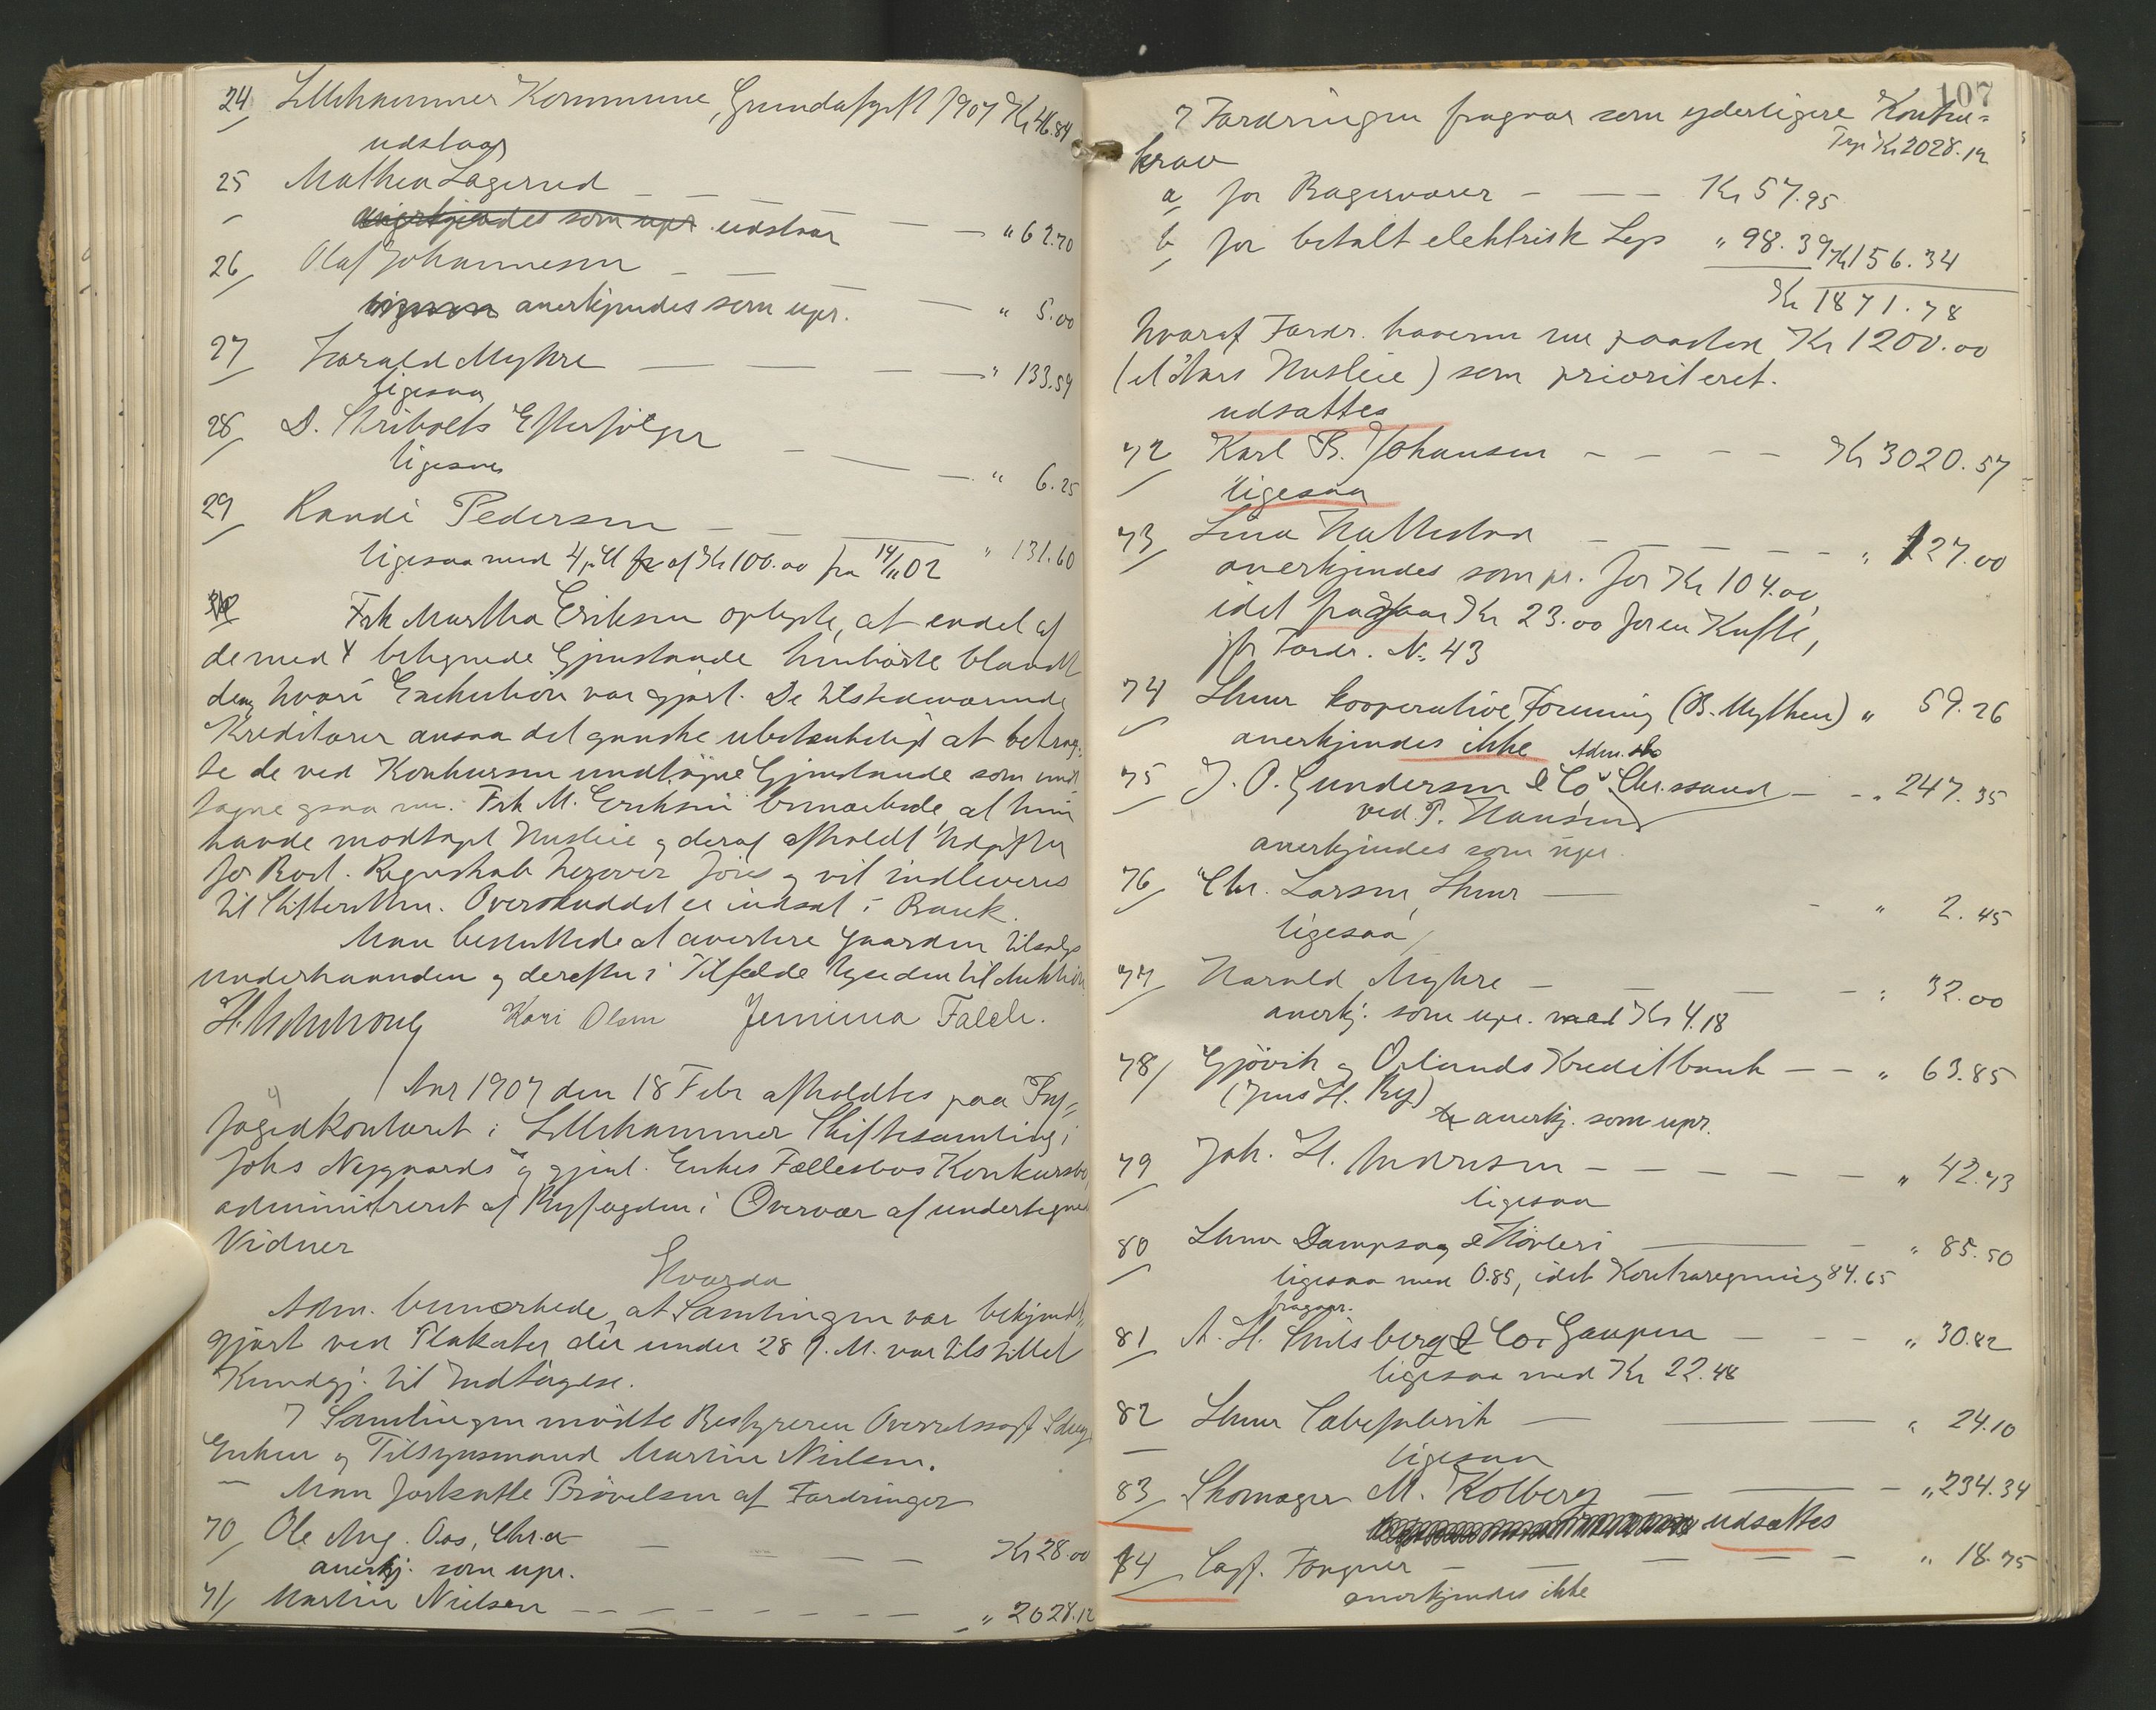 24 Lillehammer Kommune, Grundafgift 1907 Kr 46.84
udstaar
25 Mathea Lagerud
anerkjendes som upr udstaar " 62.70
26 Olaf Johannesen
ligesaa anerkjendes som upr. " 5.00
27 Harald Myhre " 133.59
ligesaa
28 D. Stribolts Efterfølger
ligesaa " 6.25
29 Randi Pedersen
ligesaa med 4 pCt af Kr 100.00 fra 14/11 02 " 131.60
Frk Martha Eriksen oplyste, at endel af
de med X betegnede Gjenstande henhørte blandt
dem, hvori Exekution var gjort. De tilstedeværende
Kreditorer ansaa det ganske ubetænkeligt at betrag-
te de ved Konkursen undtagne Gjenstande som und-
tagne ogsaa nu. Frk M. Eriksen bemærkede, at hun
havde modtaget Husleie og deraf afholdt Udgifter
for Boet. Regnskab herover føres og vil indleveres
til Skifteretten. Overskuddet er indsat i Bank.
Man besluttede at avertere Gaarden tilsalgs
underhaanden og derefter i Tilfælde lyse den til Auktion
Kari Olsen Jemima Falch.
Aar 1907 den 18 Febr afholdtes paa By-
fogedkontoret i Lillehammer Skiftesamling i
Johs Nygaards og gjenl. Enkes Fællesbos Konkursbo,
administreret af Byfogden i Overvær af undertegnede
Vidner
Hvorda
Adm. bemærkede, at Samlingen var bekjendt-
gjort ved Plakater der under 28 f. M. var tilstillet
Kundgj. til Indtagelse.
I Samlingen mødte Bestyreren Overretssagf
Enken og Tilsynsmand Martin Nielsen.
Man fortsatte Prøvelsen af Fordringer
70 Ole Aug. Aas, Chr.a Kr 28.00
anerkj. som upr.
71 Martin Nielsen " 2028.12
107
I Fordringen fragaar som yderligere Kontra-
Trp Kr 2028.12
krav
a, for Bagervarer Kr 57.95
b, for betalt elektrisk Lys " 98.39 Kr 156.34
Kr 1871.78
hvoraf Fordr. haveren nu paastod Kr 1200.00
(et Aars Husleie) som prioriteret.
udsattes
72 Karl B. Johansen Kr 3020.57
ligesaa
73 Lina Hattestad " 127.00
anerkjendes som pr. for Kr 104.00,
idet fragaar Kr 23.00 for en Kufte,
jfr Fordr. No 43
74 Lhmr kooperative Forening (B. Mythen) " 59.26
anerkjendes ikke
75 J. O. Gundersen & Co, Chr.ssand " 247.35
ved P. Hansen
anerkjendes som upr.
76 Chr. Larsen, Lhmr " 2.45
ligesaa
77 Harald Myhre " 32.00
anerkj. som upr. med Kr 4.18
78 Gjøvik og Oplands Kreditbank " 63.85
anerkj. som upr.
79 Joh. H. Andresen " 42.73
ligesaa
80 Lhmr Dampsag & Høvleri " 85.50
ligesaa med 0.85, idet Kontraregning 84.65
fragaar.
81 A. H. Smilsberg & Co, Gaupen " 30.82
ligesaa med Kr 22.48
82 Lhmr Tobaksfabrik " 24.10
ligesaa
83 Skomager M. Kolberg " 234.34
udsattes
84 Fougner " 18.75
anerkjendes ikke